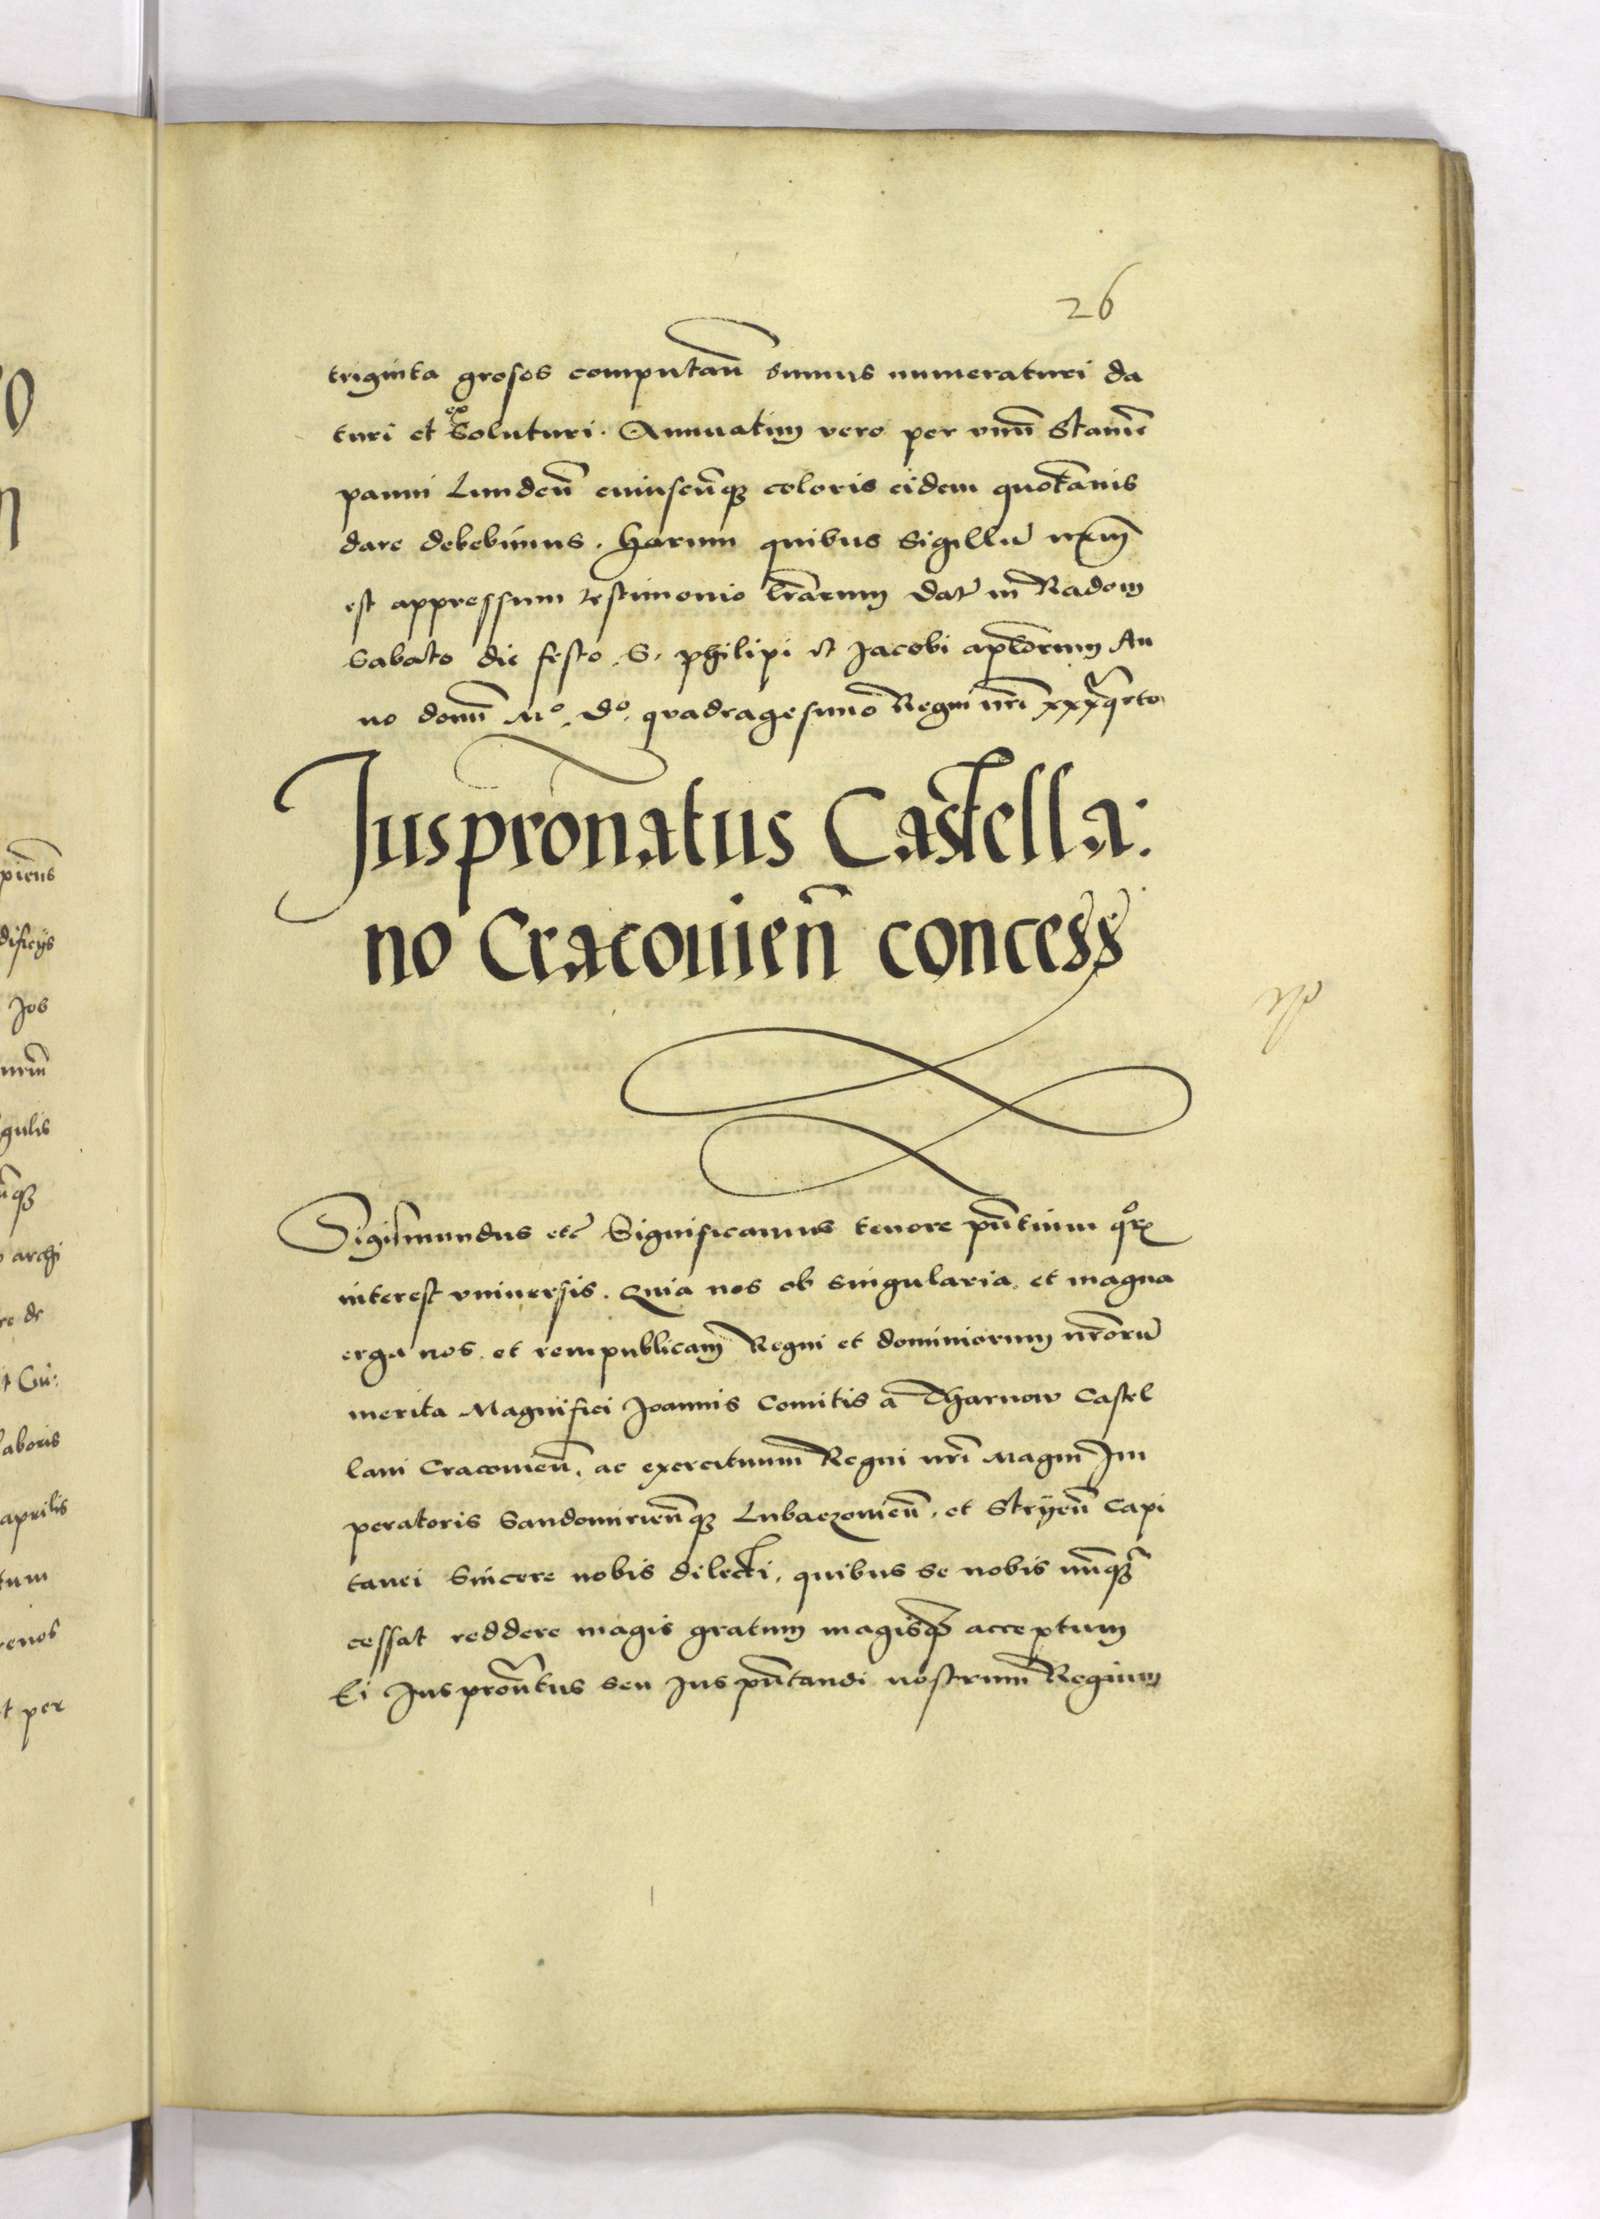 26
triginta grosos computan̄ sumus numeraturi da
turi et exsoluturi. Annuatim vero per vnū Stamē
panni Lunden̄ cuiuscūq3 coloris eidem quotānis
dare debebimus. Harum quibus Sigillū nr̄m
est appressum testimonio lr̄arum Dat̄ in Radom
Sabato die festo S. philipi et Jacobi ap̄lorum An
no domī Mº. Dº. quadragesimo Regni nr̄i xxxqrto
Juspronatus Castella:
no Cracouien̄ concess
Sigismundus etc̄ Significamus tenore pn̄tium qor
interest vniuersis. Quia nos ob singularia et magna
erga nos et rempublicam̄ Regni et dominiorum nr̄orū
merita Magnifici Joannis Comitis a Tharnow Castel
lani Cracouien̄. ac exercituum Regni nr̄i Magni Im
peratoris Sandomirien̄q3 Lubaczouien̄. et Stryen̄ Capi
tanei Sincere nobis dilecti, quibus se nobis nūq3
cessat reddere magis gratum magisq3 acceptum
Ei Juspron̄tus seu Jus pn̄tandi nostrum Regium